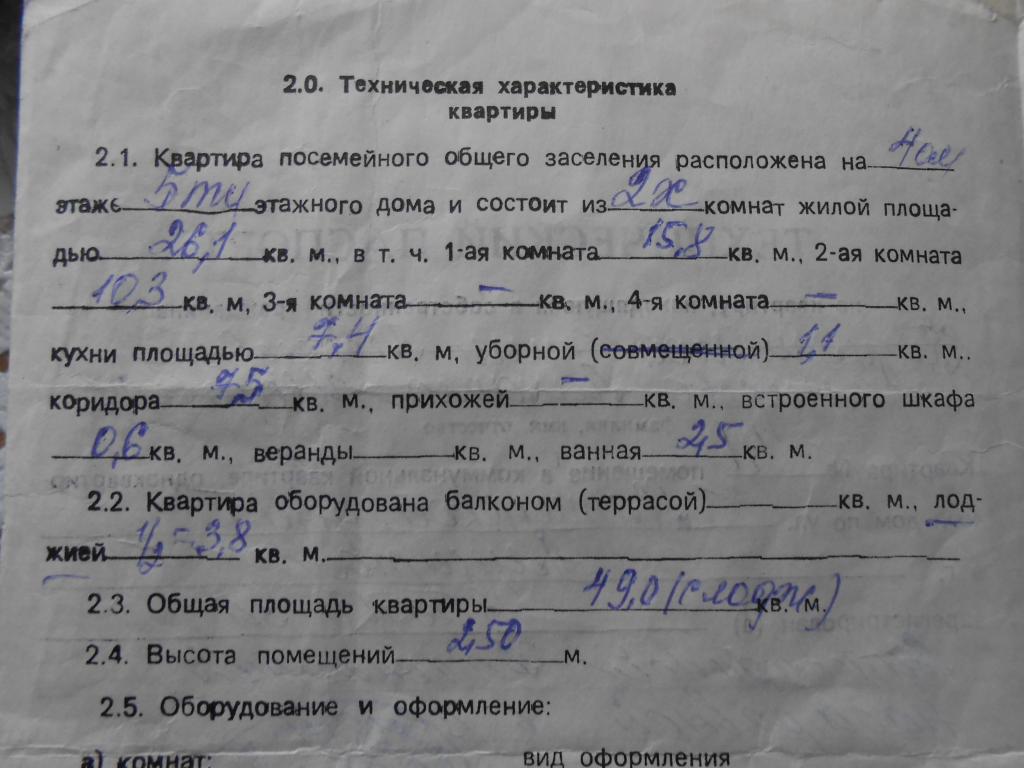 2.0. Техническая характеристика
квартиры
2.1. Квартира посемейного общего заселения расположена на 4ом
этаже 5ти этажного дома и состоит из 2х комнат жилой площа-
дью 26,1 кв. м., в т. ч. 1-ая комната 15,8 кв. м., 2-ая комната
10,3 кв. м, 3-я комната — кв. м., 4-я комната — кв. м.,
кухни площадью 7,4 кв. м, уборной (совмещенной) 1,1 кв. м..
коридора 7,5 кв. м., прихожей — кв. м., встроенного шкафа
0,6 кв. м., веранды кв. м., ванная 2,5 кв. м.
2.2. Квартира оборудована балконом (террасой) кв. м., лод-
жией 1/2 = 3,8 кв. м.
2.3. Общая площадь квартиры 49,0 (с лодж) кв. м.
2.4. Высота помещений 2,50 м.
2.5. Оборудование и оформление:
а) комнат: вид оформления